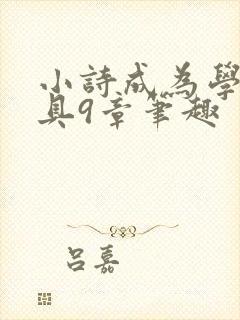 小詩成為學
具9章筆趣
吕嘉